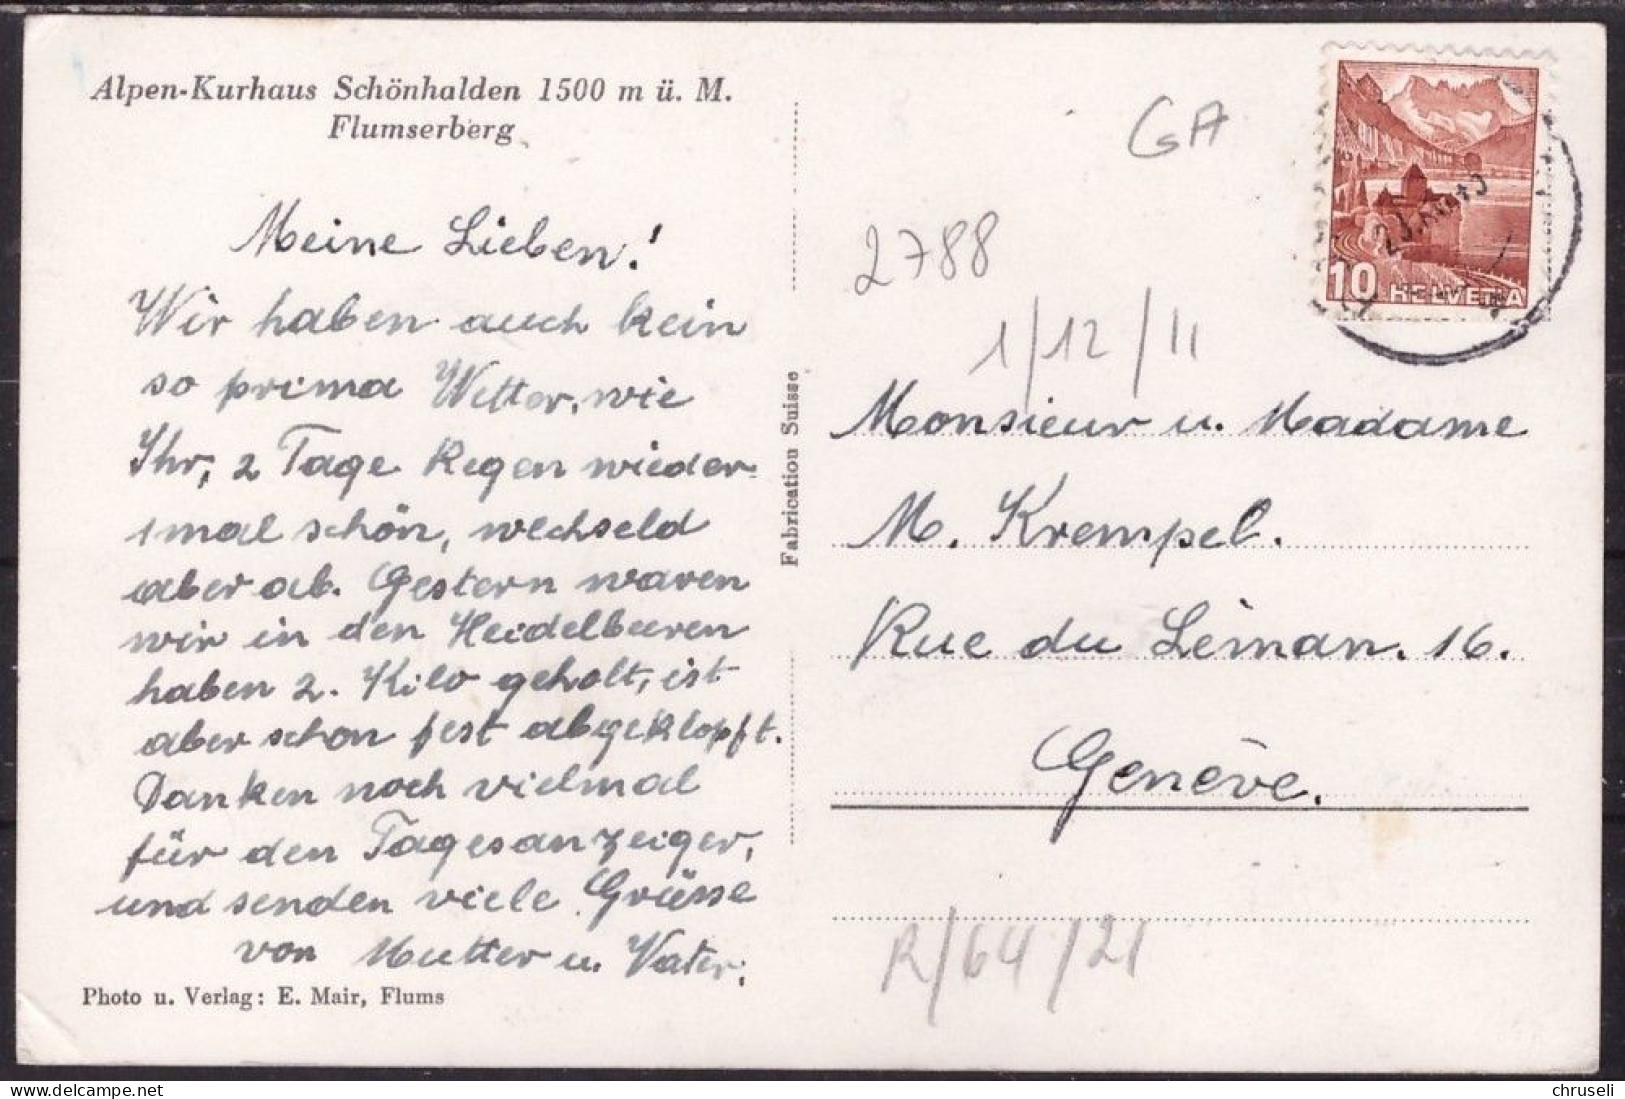 Alpen-Kurhaus Schönhalden 1500 m ü. M.
Flumserberg
Meine Lieben!
Wir haben auch kein
so prima Wetter, wie
Ihr, 2 Tage Regen wieder
1 mal schön, wechseld
aber ab. Gestern waren
wir in den Heidelbeeren
haben 2. Kilo geholt, ist
aber schon fest abgeklopft.
Danken noch vielmal
für den Tagesanzeiger,
und senden viele Grüsse
von Mutter u. Vater.
Photo u. Verlag: E. Mair, Flums
Fabrication Suisse
GA
2788
1/12/11
10 HELVETIA
Monsieur u. Madame
M. Krempel.
Rue du Léman. 16.
Genève.
R/64/21
chruseli